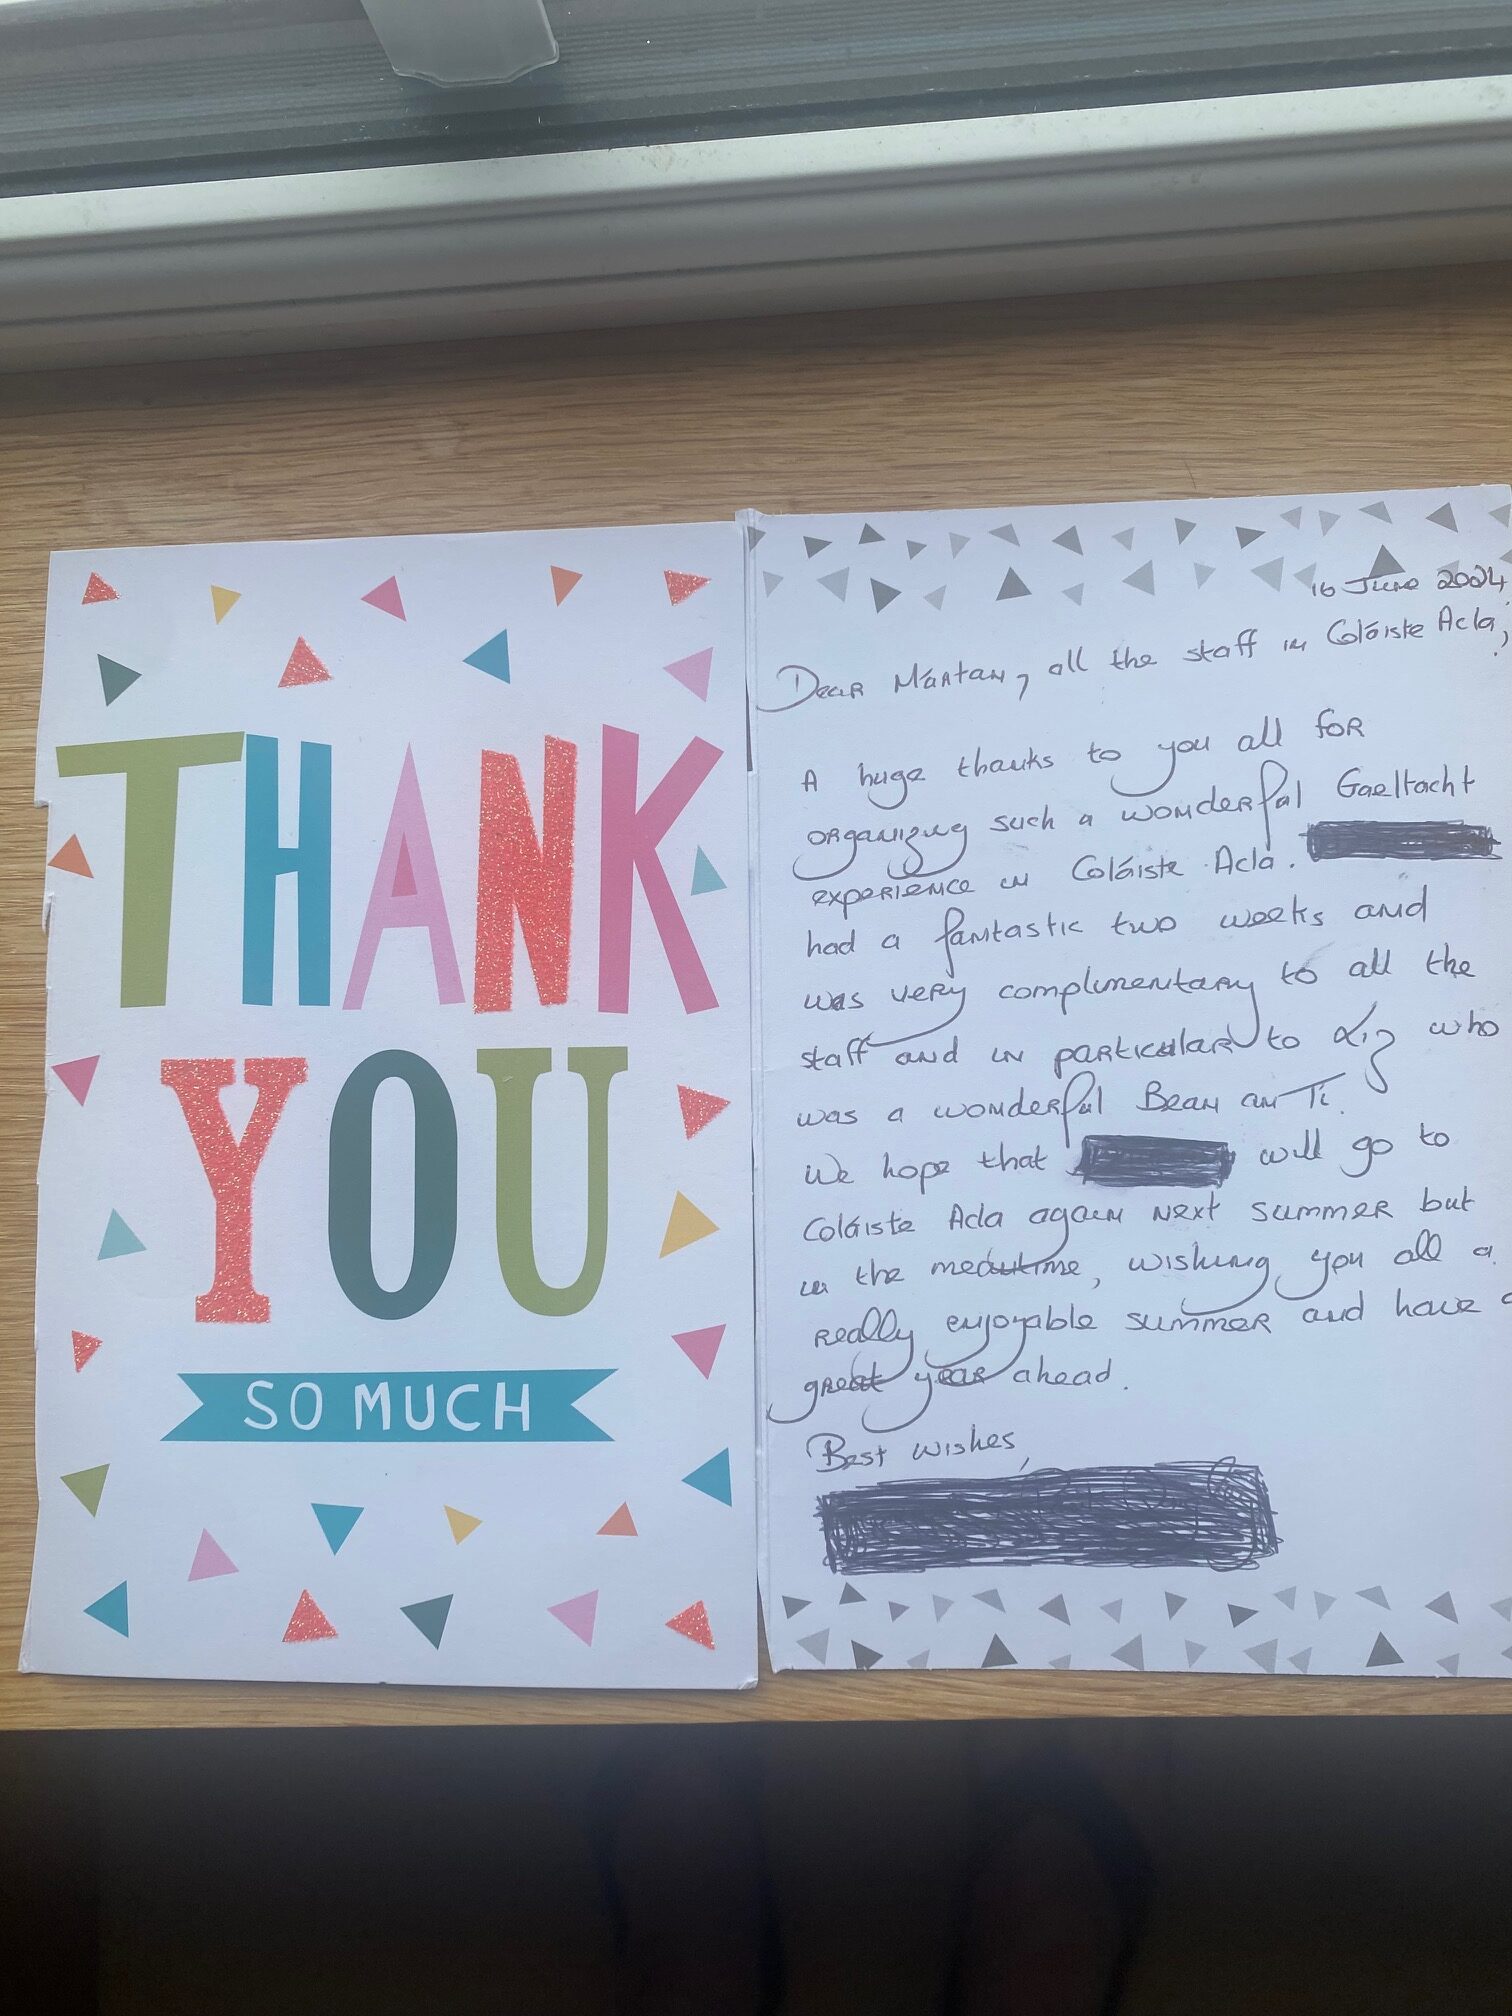 THANK
YOU
SO MUCH
16 June 2024
Dear Mártan, all the staff in Coláiste Acla,
A huge thanks to you all for
organizing such a wonderful Gaeltacht
experience in Coláiste Acla.
had a fantastic two weeks and
was very complimentary to all the
staff and in particular to Liz who
was a wonderful Bean an Tí.
We hope that will go to
Coláiste Acla again next summer but
in the meantime, wishing you all a
really enjoyable summer and have a
great year ahead.
Best wishes,